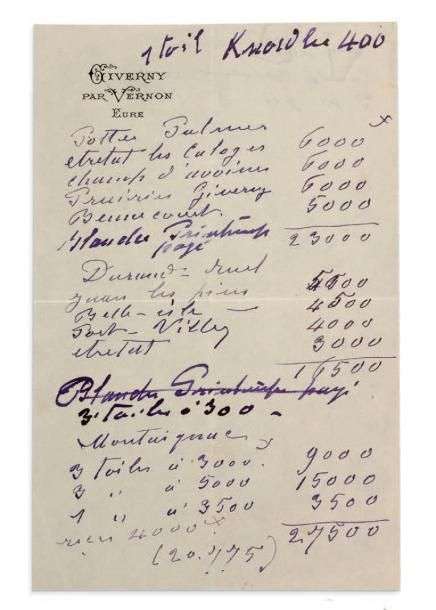 1 toil Knoedler 400
GIVERNY
PAR VERNON
EURE
Potter Palmer x
etretat les Caloges 6000
champ d'avoines 6000
Prairies Giverny 6000
Bennecourt 5000
Blanche Printemps
payé 23000
Durand-ruel
Juan les pins 4500
Belle-ile — 4500
Port-Villez 4000
etretat 3000
16500
Blanche Printemps payé
3 toiles à 300 -
Montaignac x
3 toiles à 3000. 9000
3 " à 5000 15000
1 " à 3500 3500
4000 x
27500
(20.475)